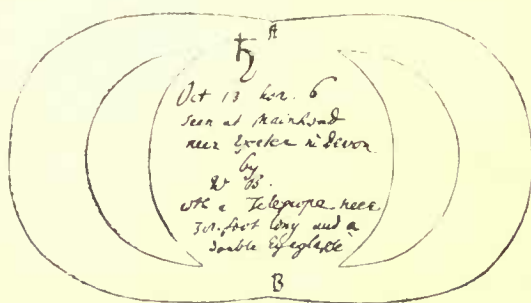 A
♄
Oct 13 hor. 6
seen at Mainhead
neer Exeter in Devon
by
W B.
wth a Telescope neer
30 foot long and a
double Eyeglasse
B